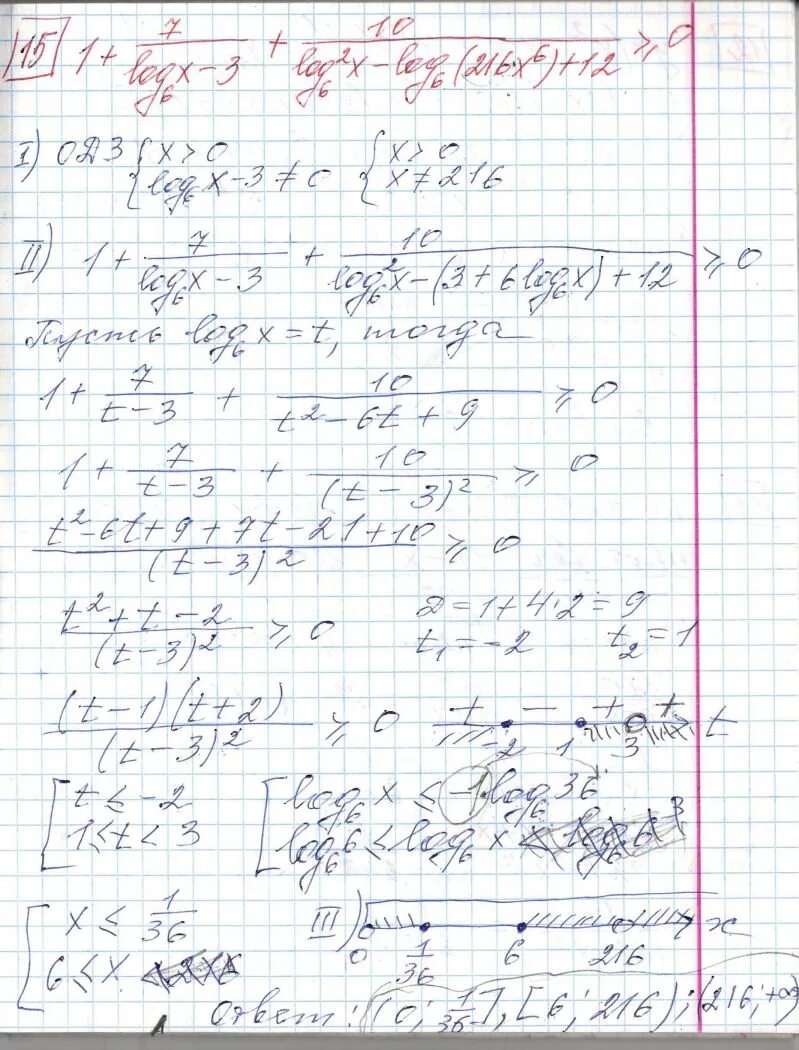 15 1 + 7/(log₆x − 3) + 10/(log₆²x − log₆(216x⁶) + 12) ≥ 0
I) ОДЗ { x > 0 { x > 0
log₆x − 3 ≠ 0 x ≠ 216
II) 1 + 7/(log₆x − 3) + 10/(log₆²x − (3 + 6log₆x) + 12) ≥ 0
Пусть log₆x = t, тогда
1 + 7/(t − 3) + 10/(t² − 6t + 9) ≥ 0
1 + 7/(t − 3) + 10/(t − 3)² ≥ 0
(t² − 6t + 9 + 7t − 21 + 10)/(t − 3)² ≥ 0
(t² + t − 2)/(t − 3)² ≥ 0 D = 1 + 4·2 = 9
t₁ = −2 t₂ = 1
(t − 1)(t + 2)/(t − 3)² ≥ 0 + − + + t
−2 1 3
[ t ≤ −2 [ log₆x ≤ −1·log₆36
1 ≤ t < 3 log₆6 ≤ log₆x < log₆6³
[ x ≤ 1/36 III) x
6 ≤ x 0 1/36 6 216
Ответ: (0; 1/36], [6; 216); (216; +∞)